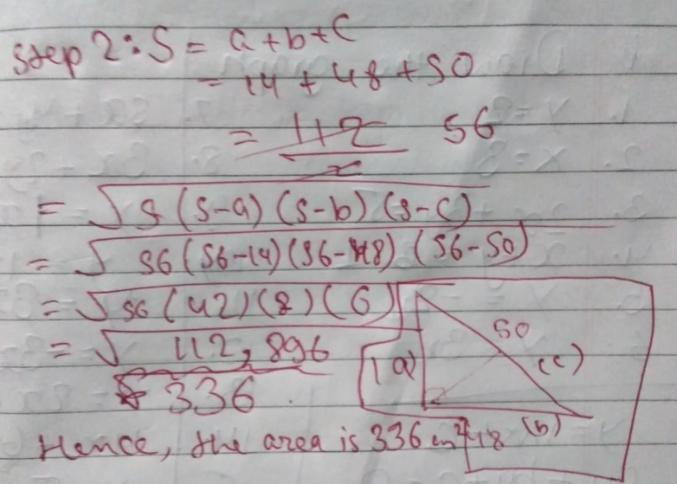 Step 2: S = a+b+c
= 14 + 48 + 50
= 112/2 56
= √s(s-a)(s-b)(s-c)
= √56(56-14)(56-48)(56-50)
= √56(42)(8)(6)
= √112,896
336
50
(a)
(c)
48 (b)
Hence, the area is 336 cm²